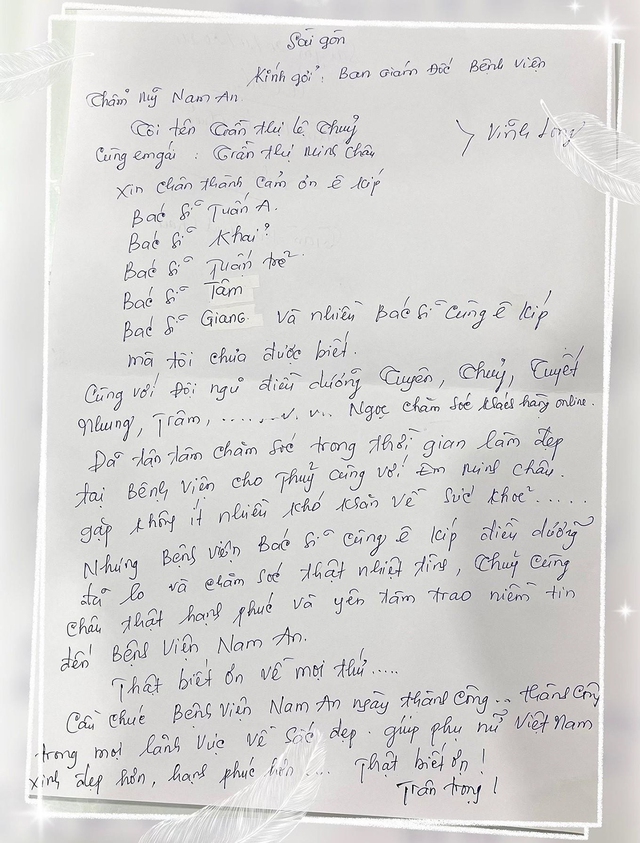 Sài gòn
Kính gởi: Ban Giám Đốc Bệnh Viện
Thẩm Mỹ Nam An
Tôi tên Trần thị lệ Thuỷ
Vĩnh Long
Cùng em gái: Trần thị Minh Châu
Xin chân thành cảm ơn ê kíp
Bác sĩ Tuấn A.
Bác sĩ Khải
Bác sĩ Tuấn trẻ
Bác sĩ Tâm
Bác sĩ Giang và nhiều Bác sĩ cùng ê kíp
mà tôi chưa được biết.
Cùng với Đôi ngủ điều dưỡng Tuyên, Thuỷ, Tuyết
Nhung, Trâm, ....... v. v.. Ngọc chăm sóc khách hàng online.
Đã tận tâm chăm sóc trong thời gian làm đẹp
tại Bệnh Viện cho Thuỷ cùng với Em Minh Châu.
gặp không ít nhiều khó khăn về sức khoẻ......
Nhưng Bệnh viện Bác sĩ cùng ê kíp điều dưỡng
đã lo và chăm sóc thật nhiệt tình, Thuỷ cùng
Châu thật hạnh phúc và yên tâm trao niềm tin
đến Bệnh Viện Nam An.
Thật biết ơn về mọi thứ.....
Cầu chúc Bệnh Viện Nam An ngày thành công... thành công
trong mọi lãnh vực về sắc đẹp. giúp phụ nữ Việt Nam
xinh đẹp hơn, hạnh phúc hơn.... Thật biết ơn!
Trân trọng!